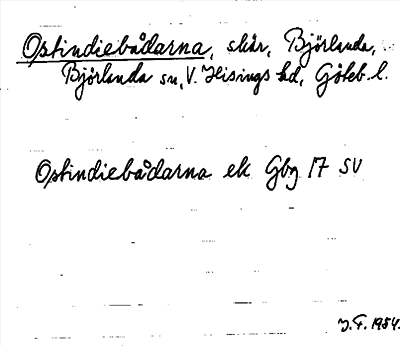 Ostindiebådarna, skär, Björlanda,
Björlanda sn, V. Hisings hd, Göteb. l.
Ostindiebådarna ek Gbg 17 SV
J.F. 1954.